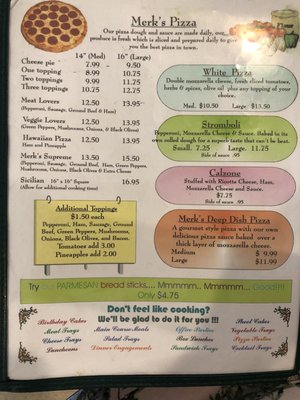 Merk's Pizza
Our pizza dough and sauce are made daily, our
produce is fresh which is sliced and prepared daily to give
you the best pizza in town.
14" (Med) 16" (Large)
Cheese pie 7.99 9.50
One topping 8.99 10.75
Two toppings 9.99 11.75
Three toppings 10.75 12.75
Meat Lovers 12.50 13.95
(Pepperoni, Sausage, Ground Beef & Ham)
Veggie Lovers 12.50 13.95
(Green Peppers, Mushrooms, Onions, & Black Olives)
Hawaiian Pizza 12.50 13.95
Ham and Pineapple
Merk's Supreme 13.50 15.50
(Pepperoni, Sausage, Ground Beef, Ham, Green Peppers,
Mushrooms, Onions, Black Olives & Extra Cheese
Sicilian 16" x 16" Square 16.95
(Allow for additional cooking time)
Additional Toppings
$1.50 each
Pepperoni, Ham, Sausage, Ground
Beef, Green Peppers, Mushrooms,
Onions, Black Olives, and Bacon.
Tomatoes add 3.00
Pineapples add 2.00
White Pizza
Double mozzarella cheese, fresh sliced tomatoes,
herbs & spices, olive oil plus any topping of your
choice.
Med. $10.50 Large $13.50
Stromboli
Pepperoni, Mozzarella Cheese & Sauce. Baked in its
own rolled dough for a superb taste that can't be beat.
Small. 7.25 Large. 11.75
Side of sauce .95
Calzone
Stuffed with Ricotta Cheese, Ham,
Mozzarella Cheese and Sauce.
$7.75
Side of sauce .95
Merk's Deep Dish Pizza
A gourmet style pizza with our own
delicious pizza sauce baked over a
thick layer of mozzarella cheese.
Medium $ 9.99
Large $11.99
Try our PARMESAN bread sticks.... Mmmmm.. Mmmmm.. Good!!!!
Only $4.75
Don't feel like cooking?
We'll be glad to do it for you !!!
Birthday Cakes Main Course Meals Office Parties Sheet Cakes
Meat Trays Salad Trays Box Lunches Vegetable Trays
Cheese Trays Dinner Engagements Sandwich Trays Pizza Parties
Luncheons Cocktail Trays